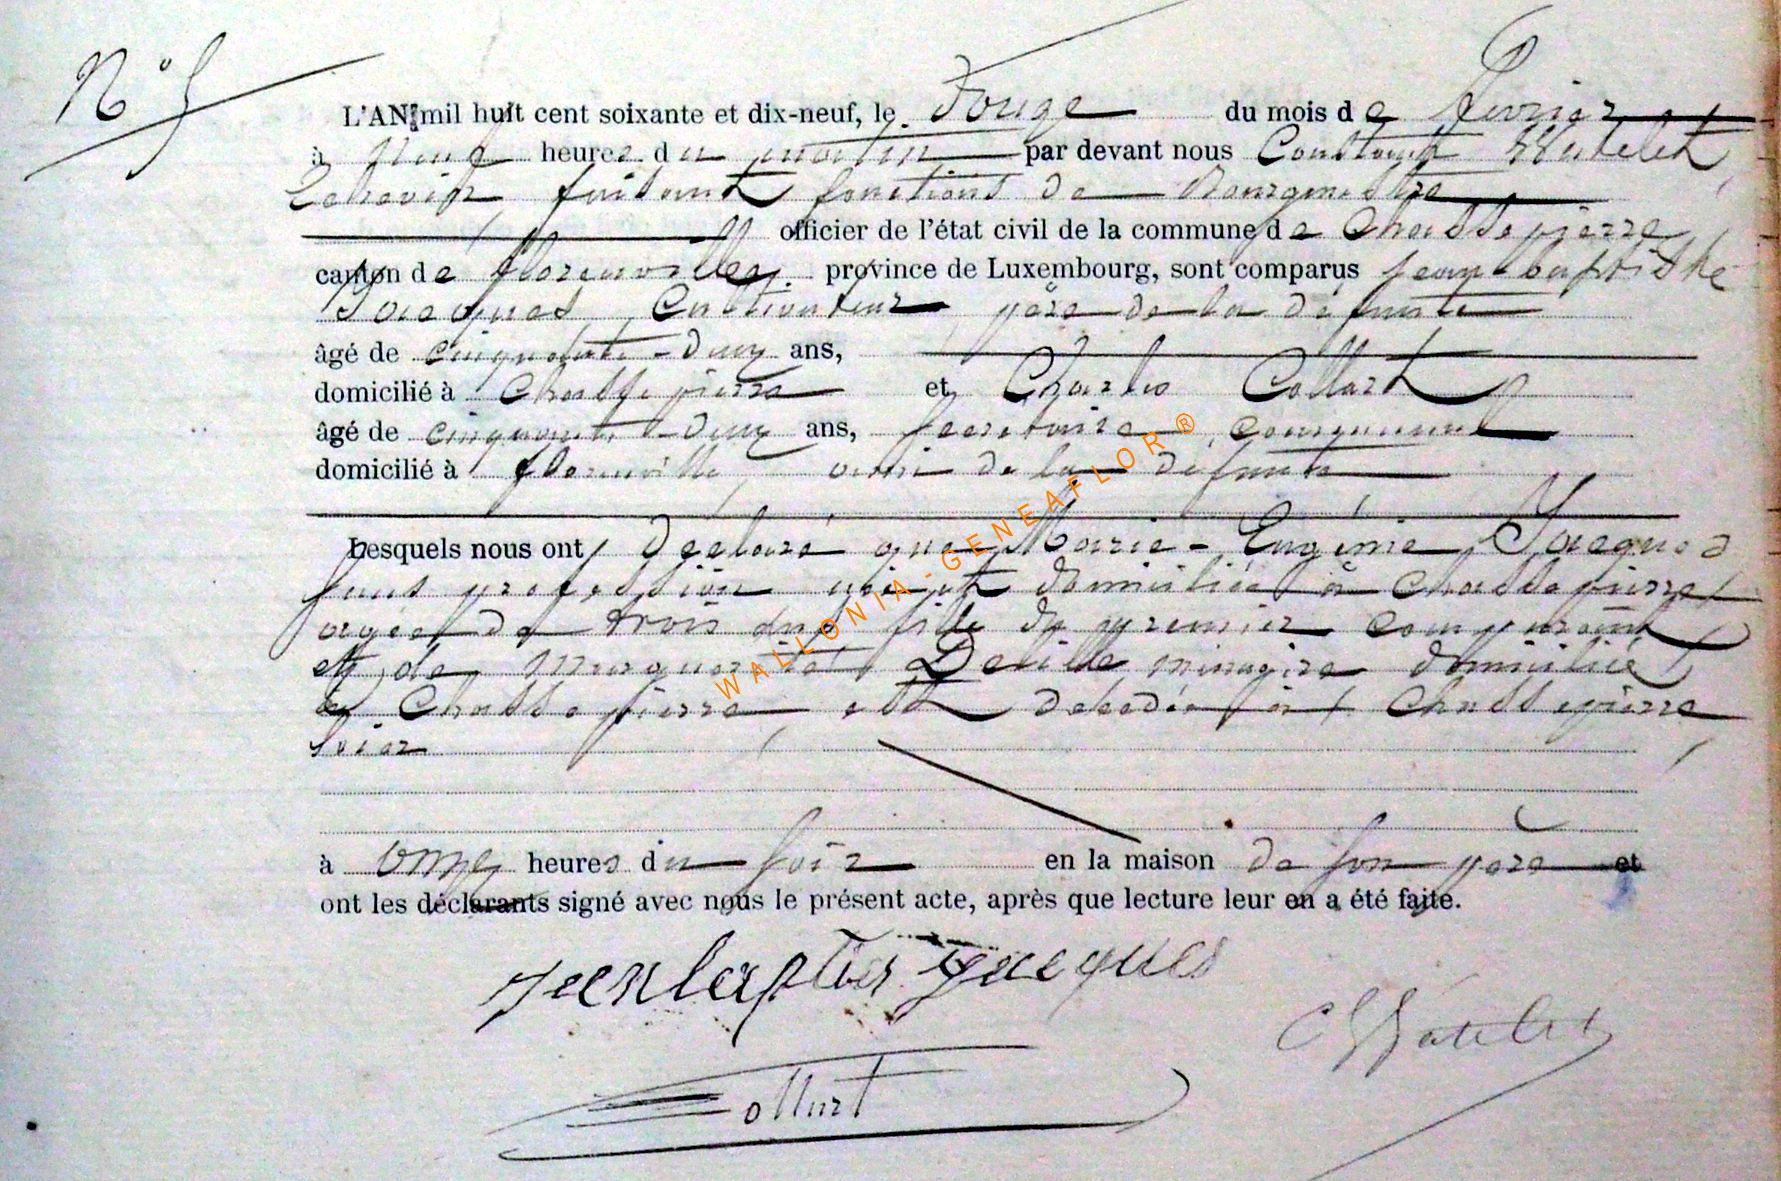 N° 5
L'AN mil huit cent soixante et dix-neuf, le Douze du mois de fevrier
à neuf heures du matin par devant nous Constant Watelet
Echevin faisant fonctions de Bourgmestre
officier de l'état civil de la commune de Chassepierre
canton de florenville province de Luxembourg, sont comparus jean-baptiste
Jacques Cultivateur père de la défunte
âgé de cinquante-deux ans,
domicilié à Chassepierre et Charles Collart
âgé de cinquante-deux ans, secretaire communal
domicilié à florenville ami de la défunte
Lesquels nous ont déclaré que Marie-Eugénie Jacques
sans profession domiciliée à Chassepierre
agée de trois ans fille du premier comparant
et de Marguerite Deville menagère domiciliée
à Chassepierre est décedée à Chassepierre
hier
à onze heures du soir en la maison de son père et
ont les déclarants signé avec nous le présent acte, après que lecture leur en a été faite.
Jean baptis Jacques
C Watelet
Collart
WALLONIA-GENEAFLOR ®